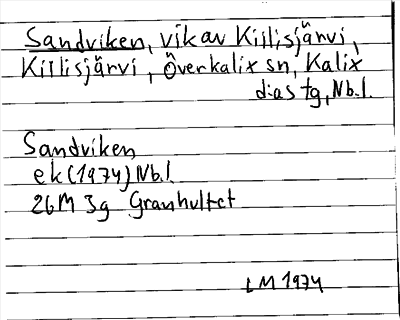 Sandviken, vik av Kiilisjärvi,
Kiilisjärvi, Överkalix sn, Kalix
dias tg, Nb.l.
Sandviken
ek (1974) Nb.l
26M 3g Granhultet
LM 1974